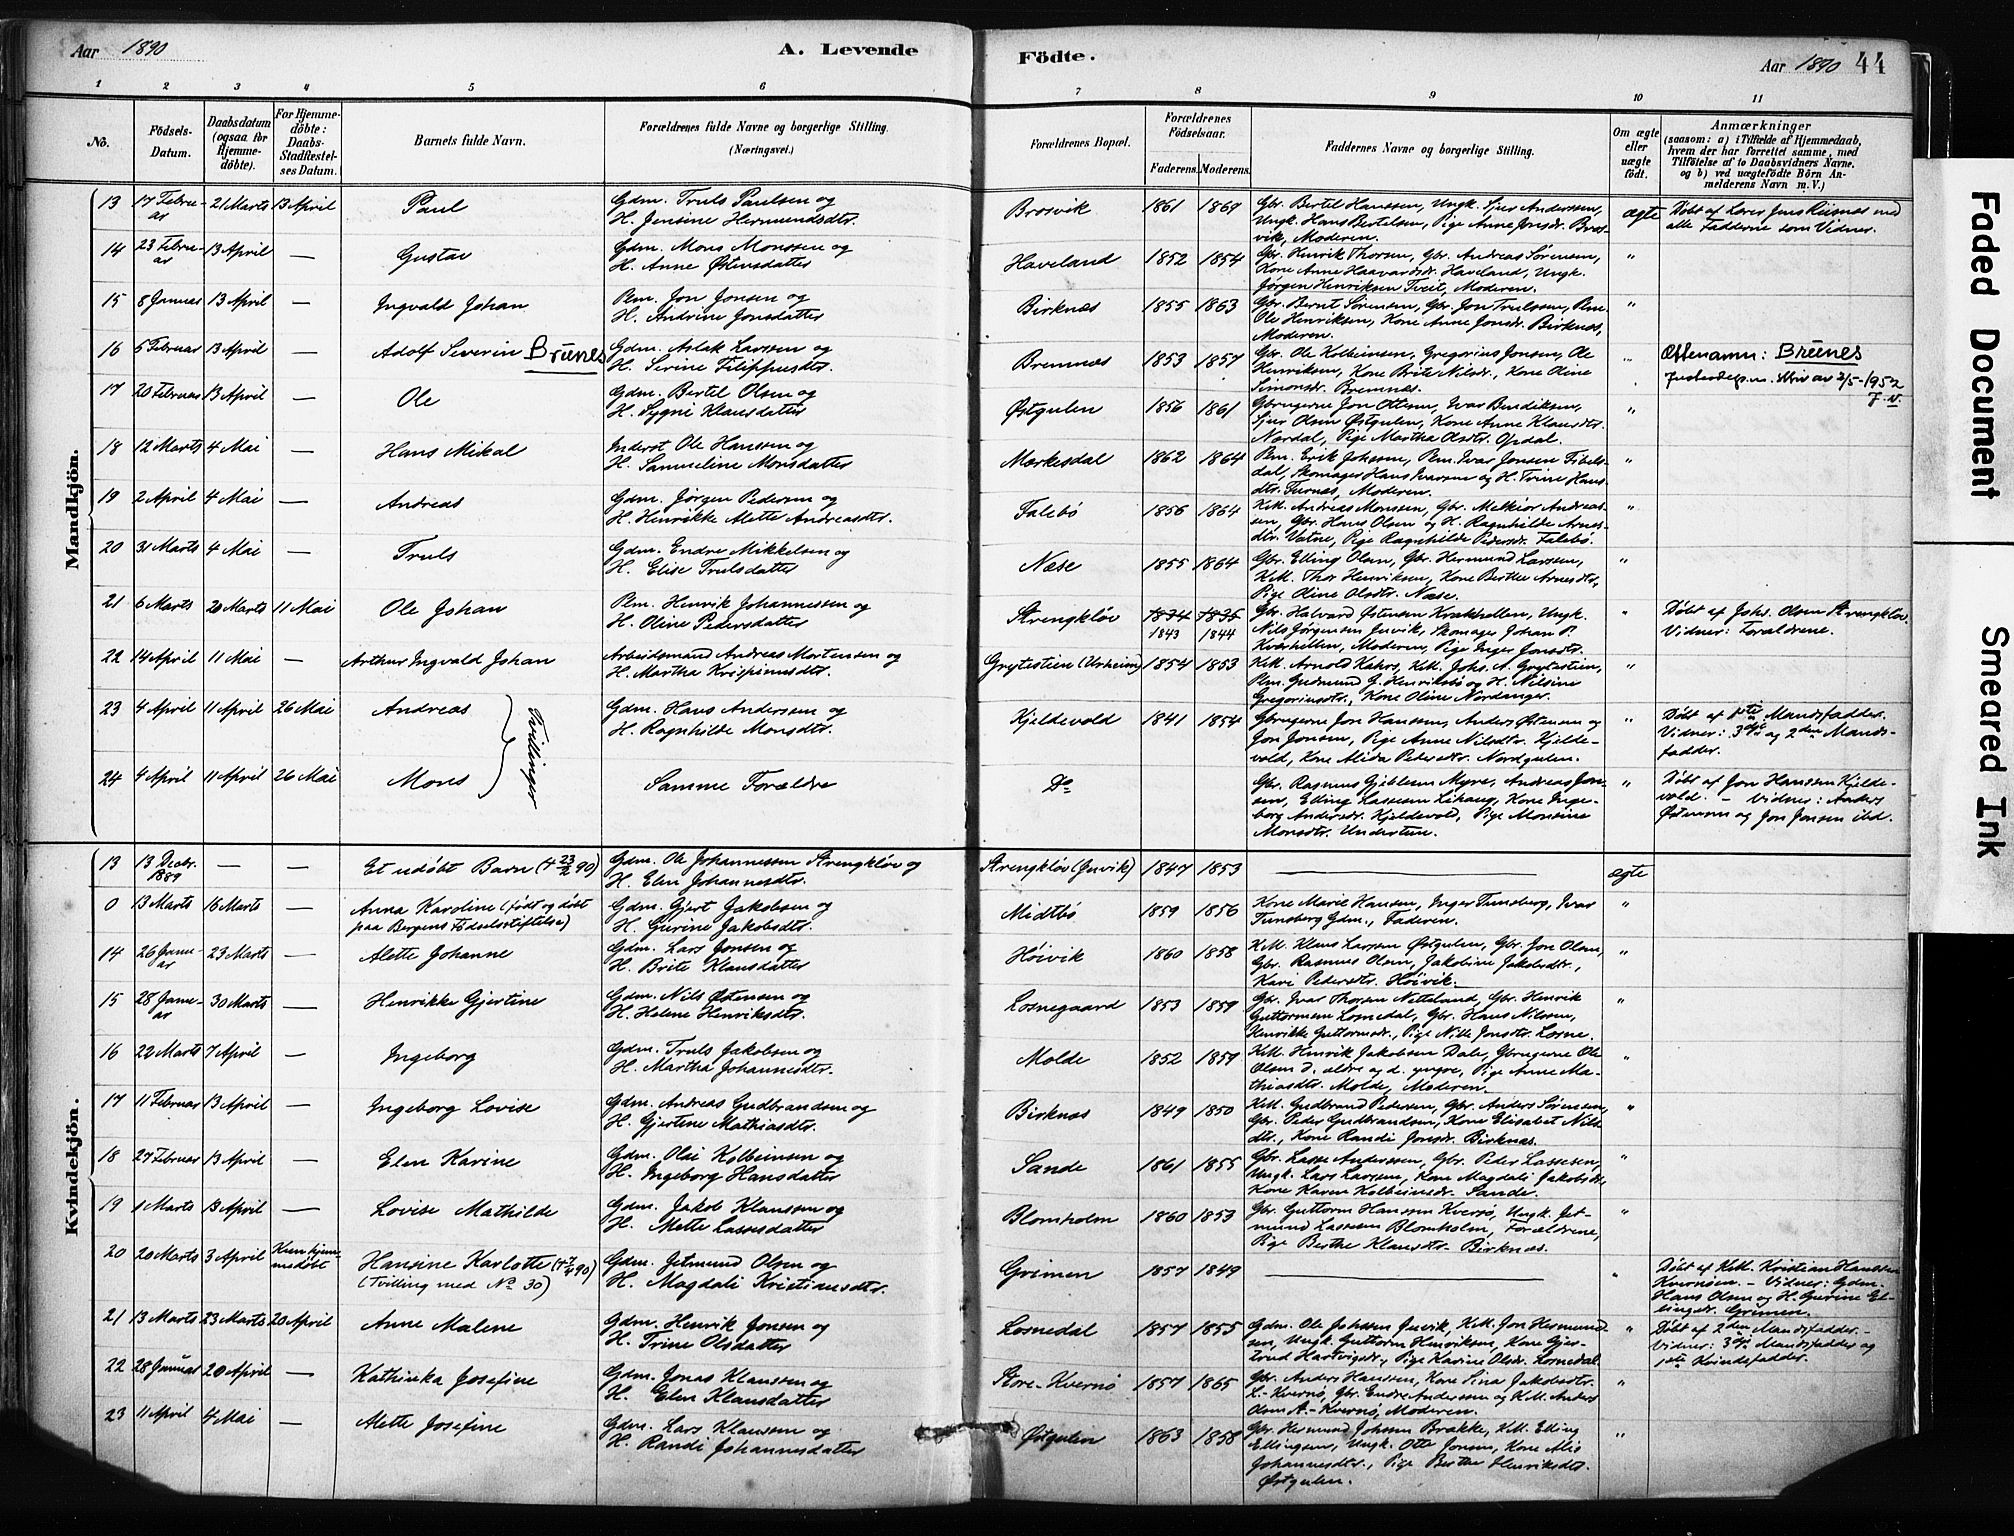 Aar 1890
A. Levende
Födte.
Aar 1890
44
1 2 3 4 5 6 7 8 9 10 11
No.
Födsels-Datum.
Daabsdatum (ogsaa for Hjemmedöbte).
For Hjemmedöbte: Daabs-Stadfæstelses Datum.
Barnets fulde Navn.
Forældrenes fulde Navne og borgerlige Stilling.
(Næringsvei.)
Forældrenes Bopæl.
Forældrenes Födselsaar.
Faderens. Moderens.
Faddernes Navne og borgerlige Stilling.
Om ægte eller uægte födt.
Anmærkninger
(saasom: a) i Tilfælde af Hjemmedaab, hvem der har forrettet samme, med Tilföielse af to Daabsvidners Navne, og b) ved uægtefödte Börn Anmelderens Navn m. V.)
Mandkjön.
13 17 Februar 21 Marts 13 April Paul Gdm. Truls Paulsen og H. Jensine Hermundsdtr. Brosvik 1861 1869 Gbr. Bertel Hanssen, Ungk. Sjur Anderssen, Ungk. Hans Bertelsen, Pige Anne Jonsdr. Brosvik, Moderen. ægte Døbt af Lærer Jens Riisnæs med alle Fadderne som Vidner.
14 23 Februar 13 April — Gustav Gdm. Mons Monssen og H. Anne Østensdatter Haveland 1852 1854 Gbr. Henrik Thorsen, Gbr. Andreas Sørensen, Kone Anne Haavardsdr. Haveland, Ungk. Jørgen Henriksen Tveit, Moderen. "
15 8 Januar 13 April — Ingvald Johan Plm. Jon Jonsen og H. Andrine Jonsdatter Birknæs 1855 1863 Gbr. Bernt Sørensen, Gbr. Jon Trulssen, Plm. Ole Henriksen, Kone Anne Jonsdr. Birknæs, Moderen. "
16 5 Februar 13 April — Adolf Severin Brünes Gdm. Aslak Larssen og H. Serine Filippusdtr. Bremnæs 1853 1857 Gbr. Ole Kolbeinsen, Gregorius Jonsen, Ole Henriksen, Kone Brite Nilsdr., Kone Oline Simonsdr. Bremnæs. " Ættenamn: Breenes
Justisdep.m. skriv av 2/5-1952
17 20 Februar 13 April — Ole Gdm. Bertel Olsen og H. Sygni Klausdatter Østgulen 1856 1861 Gbrugerne Jon Ottesen, Ivar Bendiksen, Sjur Olsen Østgulen, Kone Anne Klausdtr. Nordal, Pige Martha Olsdtr. Opdal. "
18 12 Marts 4 Mai — Hans Mikal Inderst Ole Hanssen og H. Samueline Monsdatter Mærkesdal 1862 1864 Plm. Erik Johssen, Plm. Ivar Jonsen Fivelsdal, Skomager Hans Ivarsen og H. Trine Hansdtr. Furnæs, Moderen. "
19 2 April 4 Mai — Andreas Gdm. Jørgen Pedersen og H. Henrikke Mette Andreasdtr. Falebø 1856 1864 KM. Andreas Monssen, Gbr. Melkior Andreassen, Gbr. Hans Olsen og H. Ragnhilde Arnesdtr. Vatne, Pige Ragnhilde Pedersdr. Falebø. "
20 31 Marts 4 Mai — Truls Gdm. Endre Mikkelsen og H. Elise Trulsdatter Næse 1855 1864 Gbr. Elling Olsen, Gbr. Hermund Larssen, KM. Thor Henriksen, Kone Berthe Arnesdtr., Pige Oline Olsdtr. Næse. "
21 6 Marts 20 Marts 11 Mai Ole Johan Plm. Henrik Johannessen og H. Oline Pedersdatter Strengkløv 1834 1835 1843 1844 Gbr. Halvard Østensen Kvakhellen, Ungk. Nils Jørgensen Juvik, Skomager Johan P. Kvarhellen, Moderen, Pige Inger Jonsdtr. " Døbt af Johs. Olsen Strengkløv. Vidner: Forældrene.
22 14 April 11 Mai — Arthur Ingvald Johan Arbeidsmand Andreas Mortensen og H. Martha Krispinusdtr. Grytestien (Urheim) 1854 1853 KM. Arnold Kahrs, KM. Johs. A. Grytestien, Plm. Gudmund G. Henriksbø og H. Nilsine Gregoriusdtr., Kone Oline Nordanger. "
23 4 April 11 April 26 Mai Andreas Gdm. Hans Andersen og H. Ragnhilde Monsdtr. Kjeldevold 1841 1854 Gbrugerne Jon Hanssen, Anders Østensen og Jon Jonsen, Pige Anne Nilsdtr. Kjeldevold, Kone Alida Pedersdtr. Nordgulen. " Døbt af 1ste Mandsfadder. Vidner: 3die og 2den Mandsfadder.
Tvillinger
24 4 April 11 April 26 Mai Mons Samme Forældre Do Gbr. Rasmus Gjeblesen Myre, Andreas Jonsen, Elling Lassesen Lihaug, Kone Ingeborg Andersdr. Kjeldevold, Pige Monsine Monsdtr. Undertun. " Døbt af Jon Hanssen Kjeldevold. — Vidner: Anders Østensen og Jon Jonsen ibd.
Kvindekjön.
13 13 Decbr. 1889 — — Et udøbt Barn († 23/2 90) Gdm. Ole Johannessen Strengkløv og H. Elen Johannesdtr. Strengkløv (Juvik) 1847 1853 — ægte
0 13 Marts 16 Marts Anna Karoline (født og døbt paa Bergens Fødselsstiftelse) Gdm. Gjert Jakobsen og H. Gurine Jakobsdtr. Midtbø 1859 1856 Kone Marie Hansen, Inger Tunsberg, Ivar Tunsberg Gdm., Faderen. "
14 26 Januar 23 Marts — Alette Johanne Gdm. Lars Jonsen og H. Brite Klausdatter Høivik 1860 1858 KM. Klaus Larssen Østgulen, Gbr. Jon Olsen, Gbr. Rasmus Olsen, Jakobine Jakobsdtr., Kari Pedersdtr. Høivik. "
15 28 Januar 30 Marts — Henrikke Gjertine Gdm. Nils Østensen og H. Helene Henriksdtr. Losnegaard 1853 1859 Gbr. Ivar Thorsen Netteland, Gbr. Henrik Guttormsen Losnedal, Gbr. Hans Nilssen, Henrikke Guttormsdr., Pige Nille Jonsdtr. Losne. "
16 22 Marts 7 April — Ingeborg Gdm. Truls Jakobsen og H. Martha Johannesdtr. Molde 1852 1859 KM. Henrik Jakobsen Dale, Gbrugerne Ole Olsen d. ældre og d. yngre, Pige Anne Mathiasdtr. Molde, Moderen. "
17 11 Februar 13 April — Ingeborg Lovise Gdm. Andreas Gudbrandsen og H. Gjertine Mathiasdtr. Birknæs 1849 1850 KM. Gudbrand Pedersen, Gbr. Anders Sørensen, Gbr. Peder Gudbrandsen, Kone Elisabet Nilsdtr., Kone Randi Jonsdr. Birknæs. "
18 27 Februar 13 April — Elen Karine Gdm. Olai Kolbeinsen og H. Ingeborg Hansdatter Sande 1861 1855 Gbr. Lasse Anderssen, Gbr. Peder Lassesen, Ungk. Lars Larssen, Kone Magdali Jakobsdr., Kone Karen Kolbeinsdr. Sande. "
19 1 Marts 13 April — Lovise Mathilde Gdm. Jakob Klaussen og H. Mette Lassesdatter Blomholm 1860 1853 Gbr. Guttorm Hanssen Kversø, Ungk. Jetmund Lassesen Blomholm, Forældrene, Pige Berthe Klausdtr. Birknæs. "
20 20 Marts 3 April Kun hjemmedøbt Hansine Karlotte († 7/4 90) (Tvilling med No 30) Gdm. Jetmund Olsen og H. Magdali Kristiansdtr. Grimen 1857 1849 — " Døbt af KM. Kristian Hanssen Kvernøen. — Vidner: Gdm. Hans Olsen og H. Gurine Ellingsdr. Grimen.
21 13 Marts 23 Marts 20 April Anne Malene Gdm. Henrik Jonsen og H. Trine Olsdatter Losnedal 1857 1855 Gdm. Ole Johssen Juvik, KM. Jon Hermundsen, Ungk. Guttorm Henriksen, Kone Gjertrud Hartvigsdr., Pige Karine Olsdr. Losnedal. " Døbt af 2den Mandsfadder. — Vidner: 3die Mandsfadder og 1ste Kvindefadder.
22 28 Januar 20 April — Kathinka Josefine Gdm. Jonas Klaussen og H. Elen Klausdatter Store-Kvernø 1857 1865 Gbr. Anders Hanssen, Kone Sina Jakobsdtr. L.-Kvernø, Gbr. Endre Anderssen og KM. Anders Olsen A.-Kvernø, Moderen. "
23 11 April 4 Mai — Alette Josefine Gdm. Lars Klaussen og H. Randi Johannesdatter Østgulen 1863 1858 Gbr. Hermund Johssen Brække, KM. Elling Ellingsen, Ungk. Otte Jonsen, Kone Alis Johannesdtr., Pige Berthe Henriksdtr. Østgulen. "
Faded Document
Smeared Ink